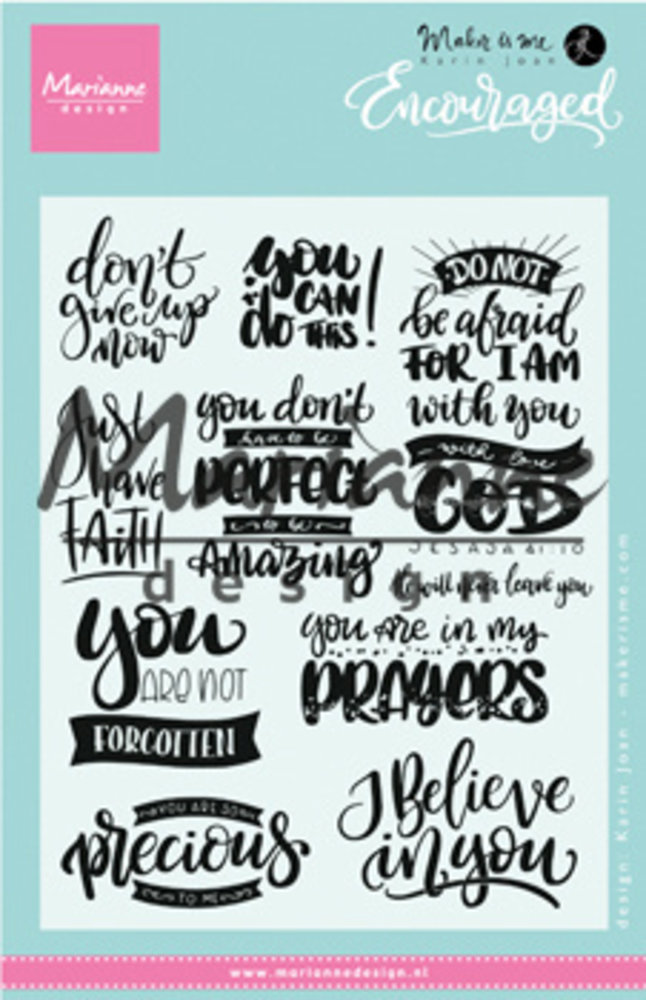 Marianne
design
Maker is me
Karin Joan
Encouraged
don't
give up
now
you
CAN
do THIS!
DO NOT
be afraid
FOR I AM
with you
with love
GOD
JESAJA 41:10
Just
have
FAITH
you don't
have to be
PERFECT
to be
Amazing
Marianne
design
He will never leave you
you
ARE NOT
FORGOTTEN
you are in my
PRAYERS
YOU ARE SO
precious
TO ME
I Believe
in you
design: Karin Joan - makerisme.com
www.mariannedesign.nl